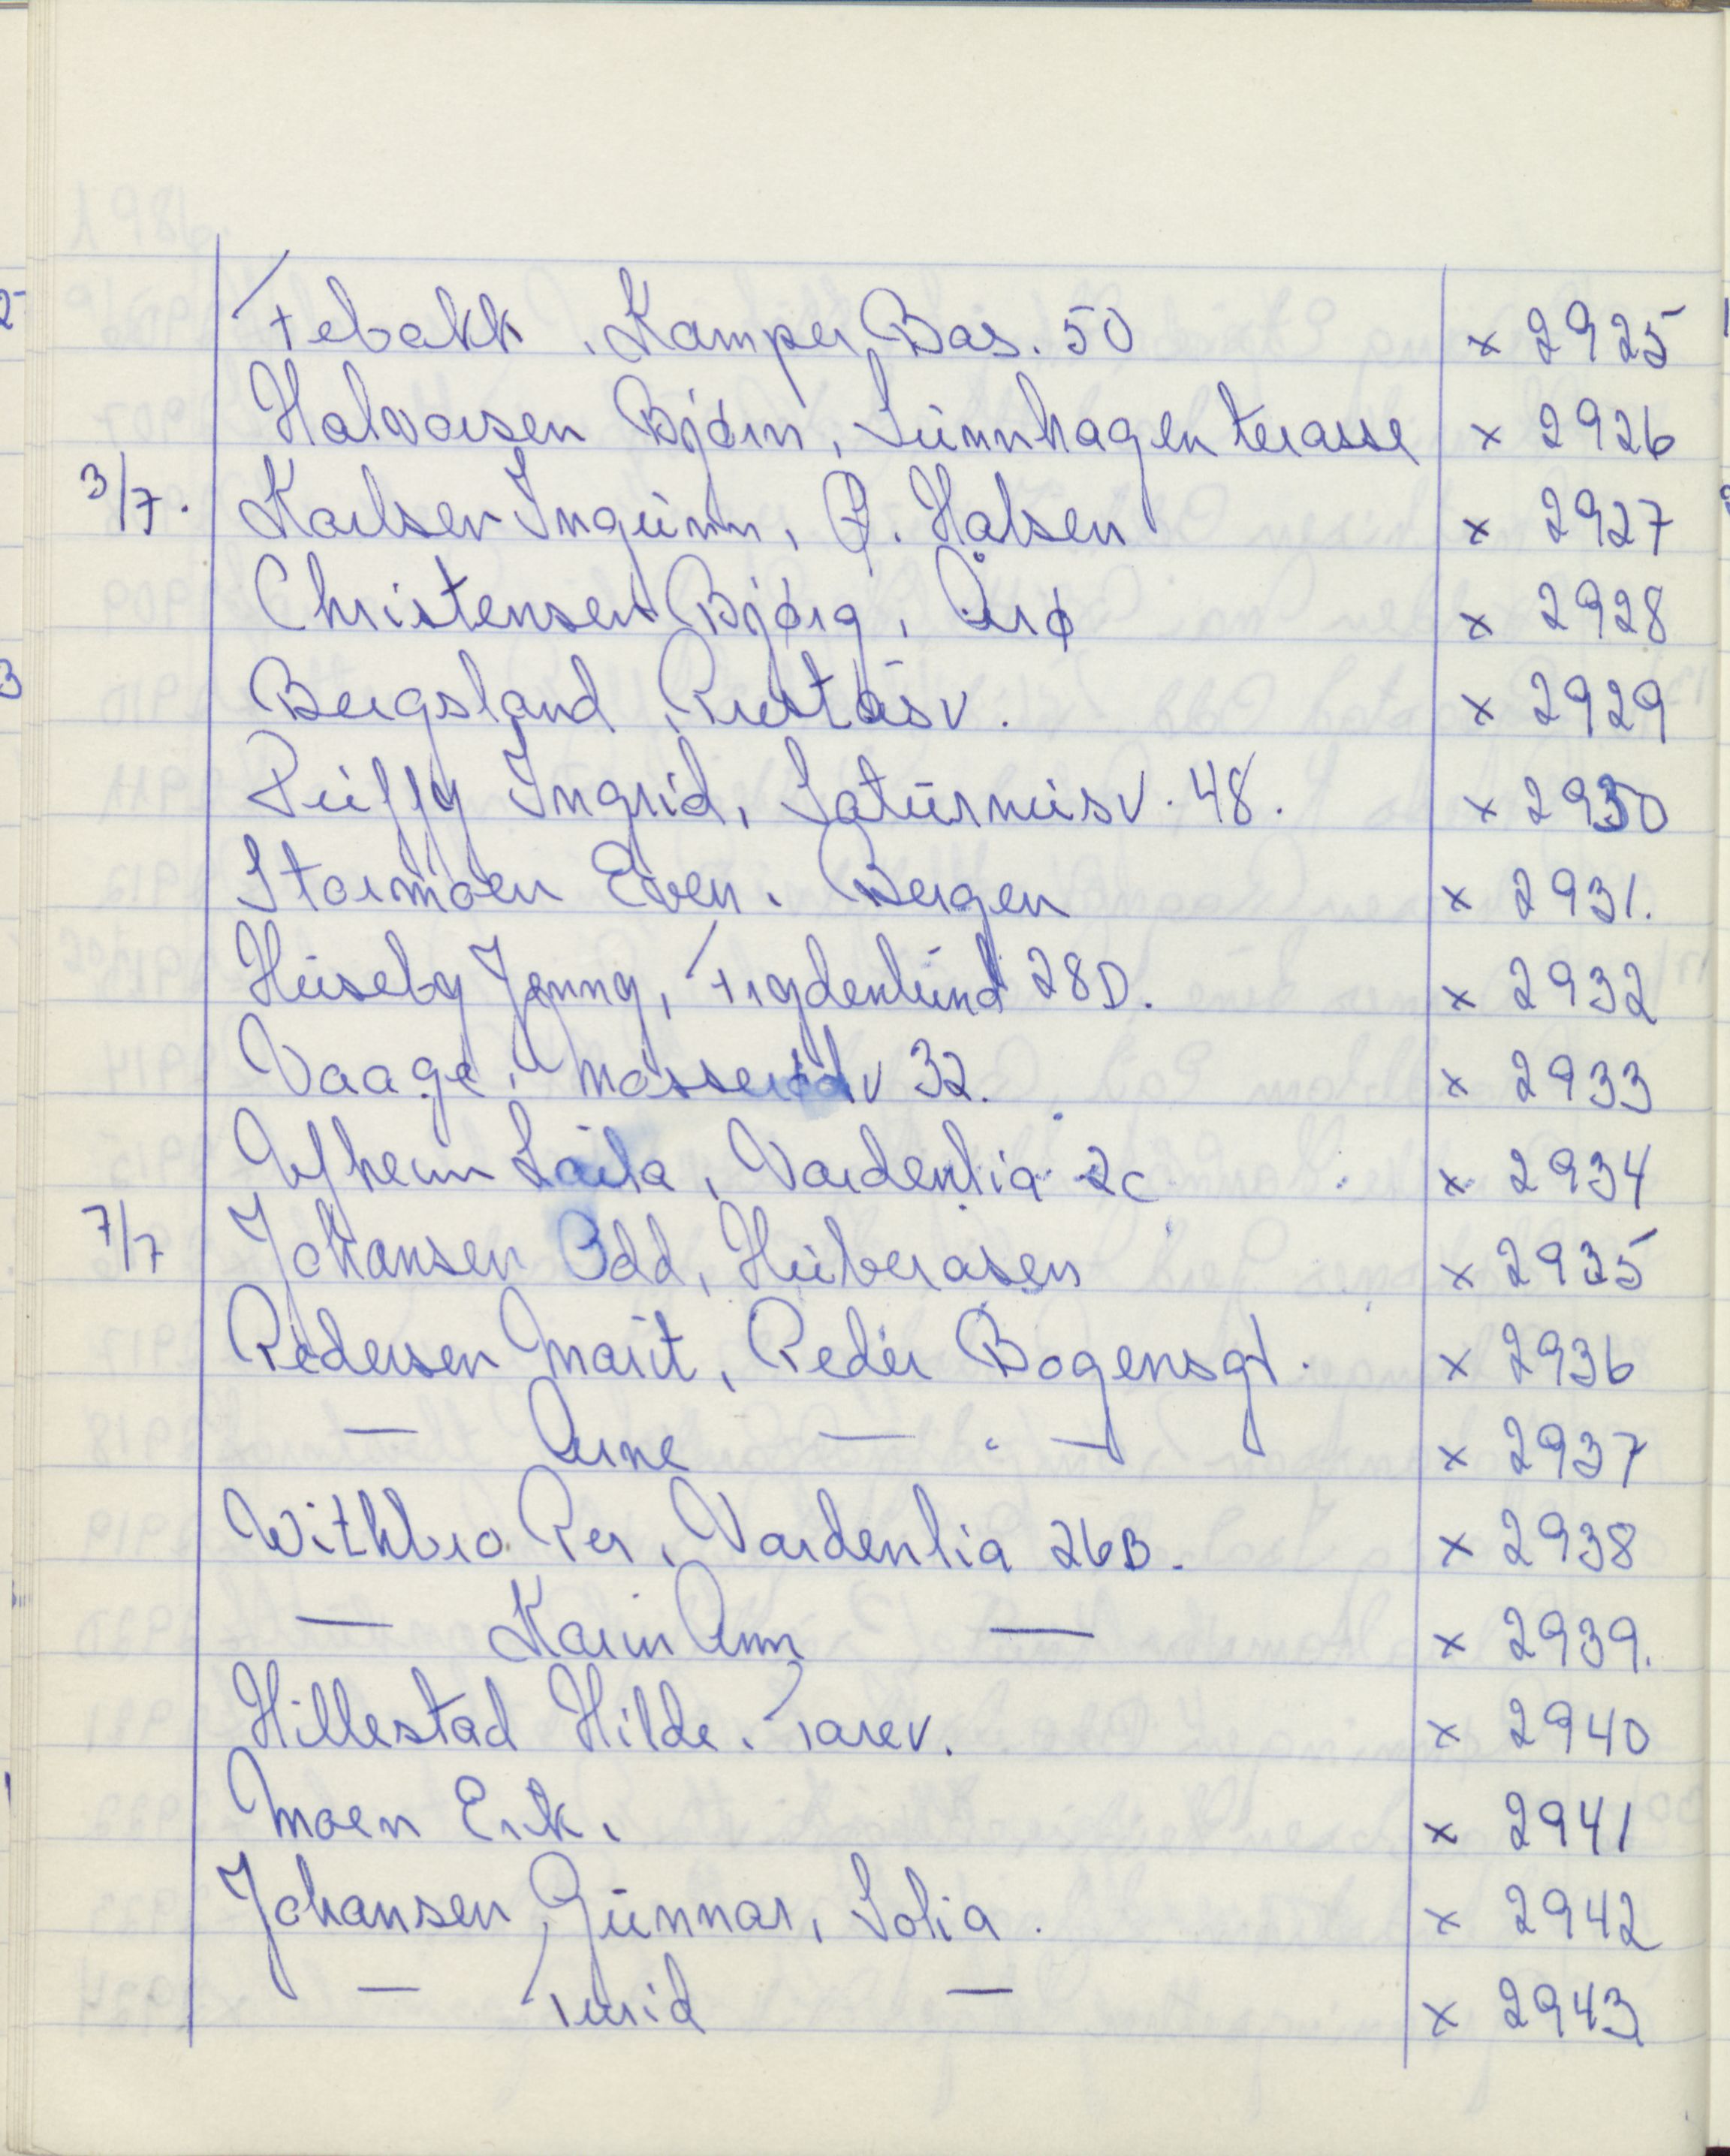 Tebakk, Kamper Bas. 50 x 2925
Halvorsen Bjørn, Sünnhagen terasse x 2926
3/7. Karlsen Ingunn, P. Halsen x 2927
Christensen Bjørg, Årø x 2928
Bergsland, Ruståsv. x 2929
Ingrid, Saturnusv. 48. x 2930
Stormoen Even. Bergen x 2931.
Huseby Jenny, Frydenlund 28D. x 2932
Vaage, Mosserødv 32. x 2933
Laila, Vardenlia 2c x 2934
7/7 Johansen Odd, Huberåsen x 2935
Pedersen Marit, Peder Bogensgt. x 2936
— Arne — " — x 2937
Withbro Per, Vardenlia 26B. x 2938
— Karin Ann — x 2939.
Hillestad Hilde. Tarev. x 2940
Moen Erik, x 2941
Johansen Gunnar, Solia. x 2942
— Turid — x 2943